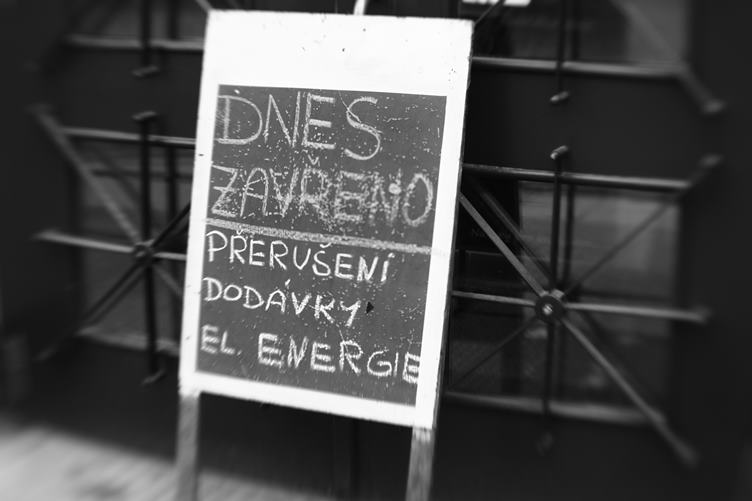 DNES
ZAVŘENO
PŘERUŠENÍ
DODÁVKY
EL. ENERGIE